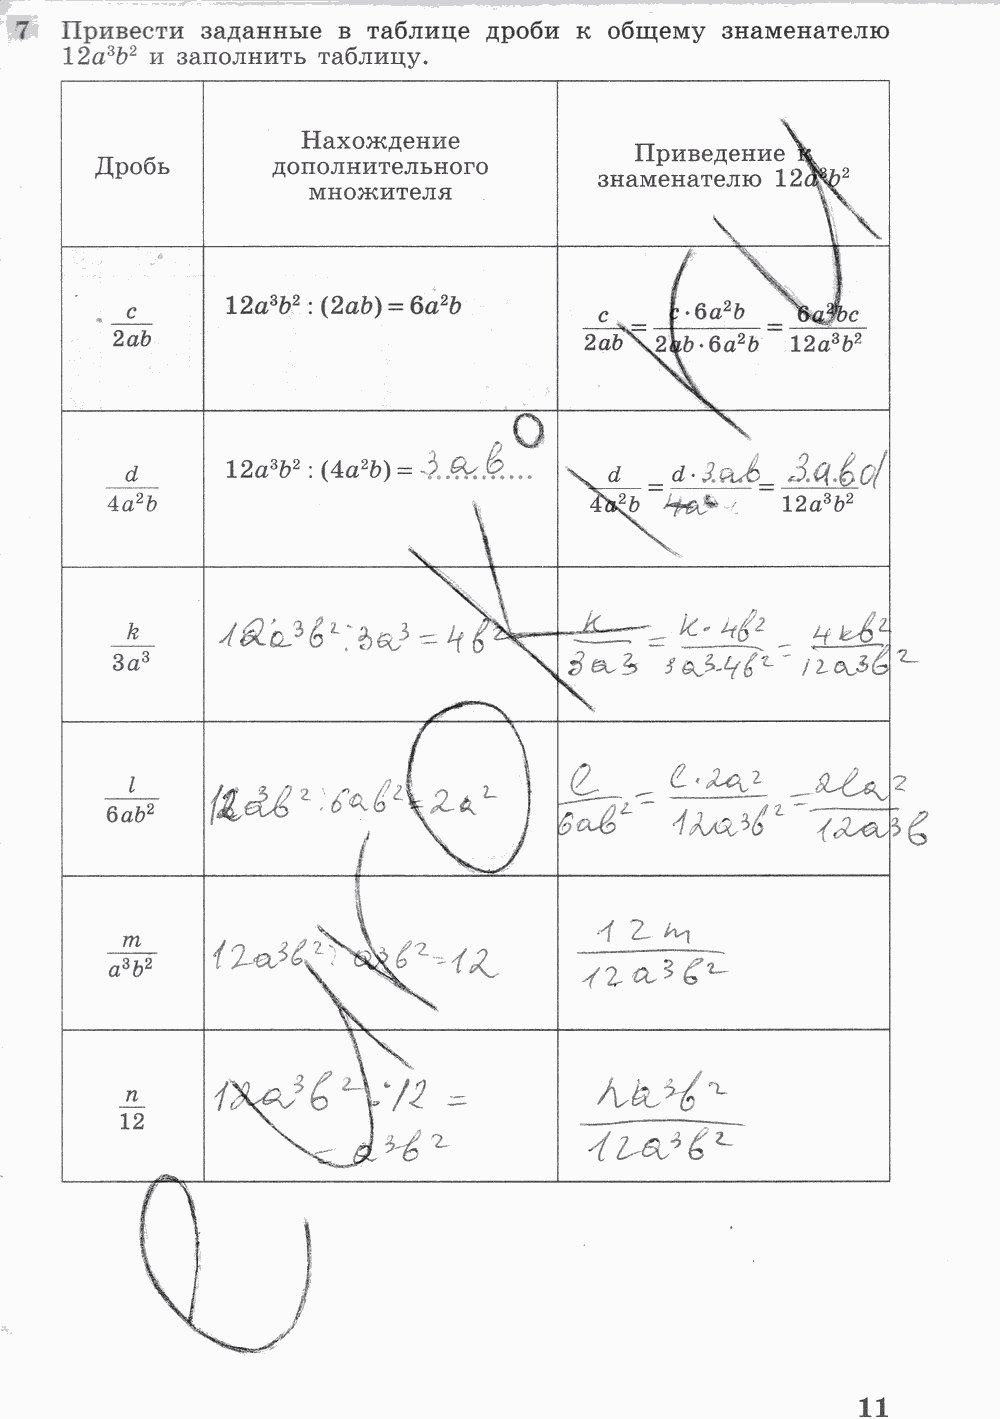 7 Привести заданные в таблице дроби к общему знаменателю
12a³b² и заполнить таблицу.
Дробь
Нахождение
дополнительного
множителя
Приведение к
знаменателю 12a³b²
c/2ab
12a³b² : (2ab) = 6a²b
c/2ab = c·6a²b/2ab·6a²b = 6a²bc/12a³b²
d/4a²b
12a³b² : (4a²b) = 3ab
d/4a²b = d·3ab/4a² = 3abd/12a³b²
k/3a³
12a³b² : 3a³ = 4b²
k/3a3 = k·4b²/3a3·4b² = 4kb²/12a3b²
l/6ab²
12a³b² : 6ab² = 2a²
l/6ab² = l·2a²/12a³b² = 2la²/12a³b
m/a³b²
12a³b² : a³b² = 12
12m/12a³b²
n/12
12a³b² : 12 =
= a³b²
na³b²/12a³b²
11